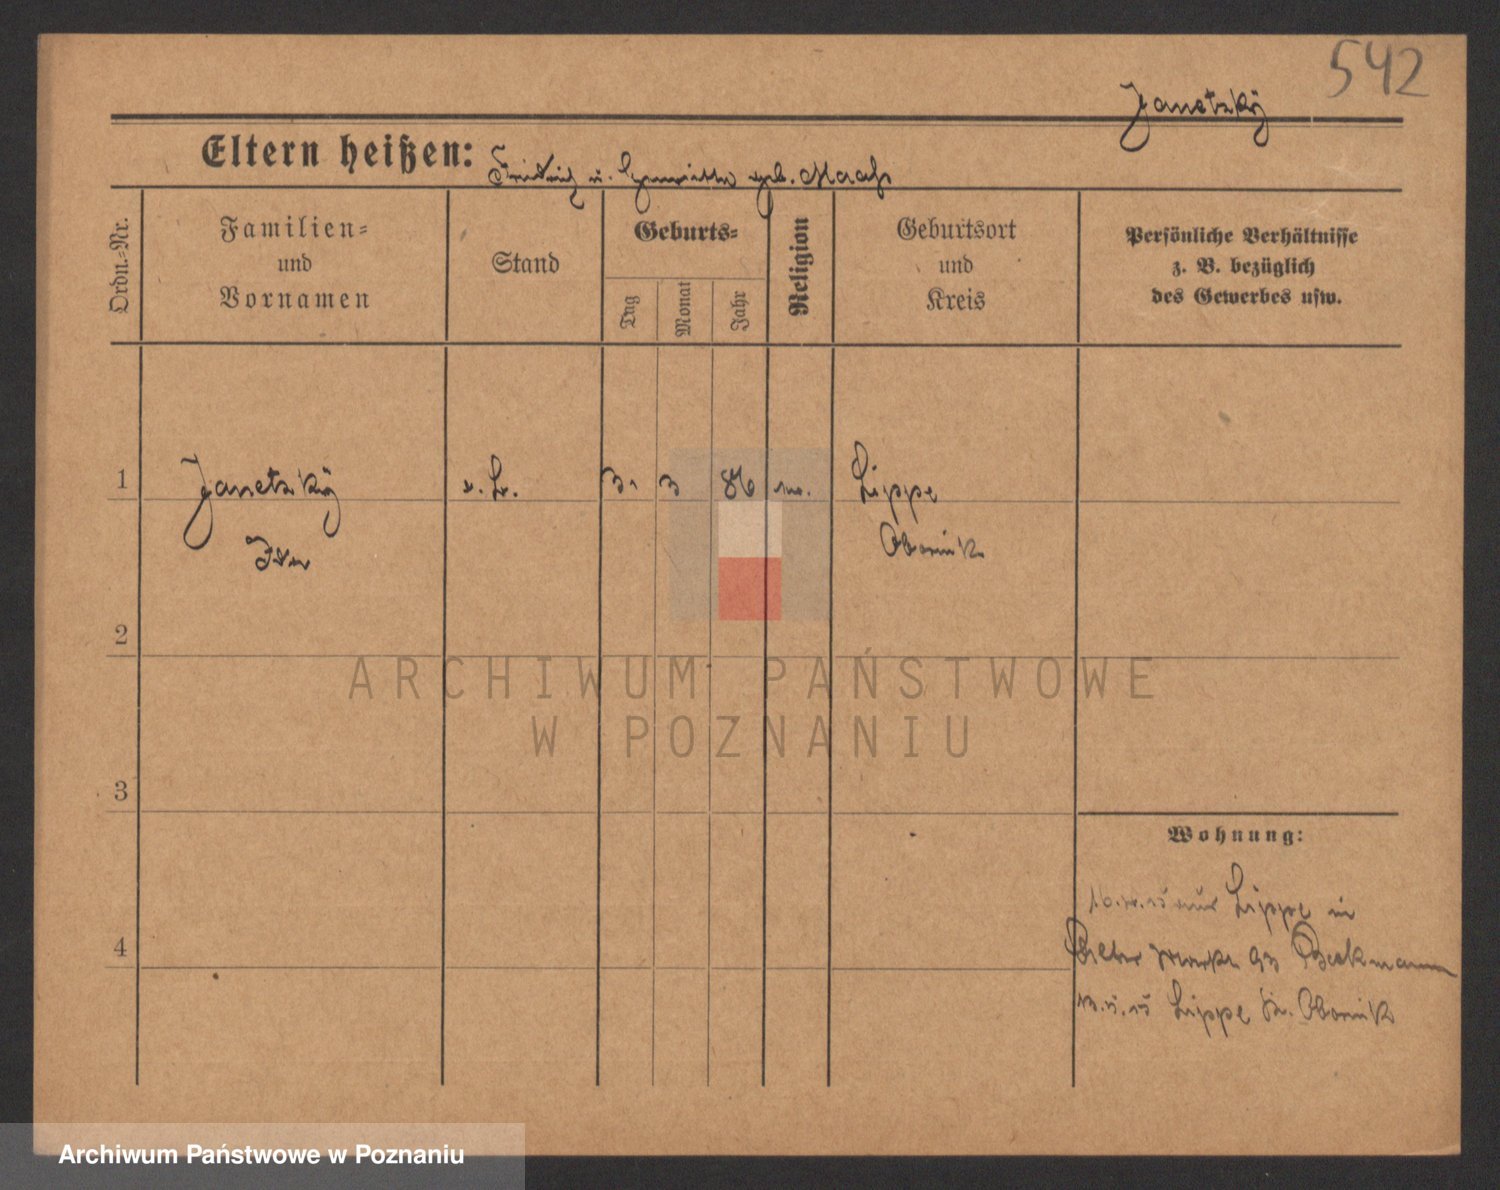 542
Janetzky
Eltern heißen: Friedrich u. Henriette geb. Maaß
Ordn.-Nr.
Familien-
und
Vornamen
Stand
Geburts-
Tag
Monat
Jahr
Religion
Geburtsort
und
Kreis
Persönliche Verhältnisse
z. B. bezüglich
des Gewerbes usw.
1 Janetzky 3 86 Lippe
Ida Obornik
2
3
4
Wohnung:
Lippe in
93 Beckmann
Lippe Kr. Obornik
ARCHIWUM PAŃSTWOWE
W POZNANIU
Archiwum Państwowe w Poznaniu